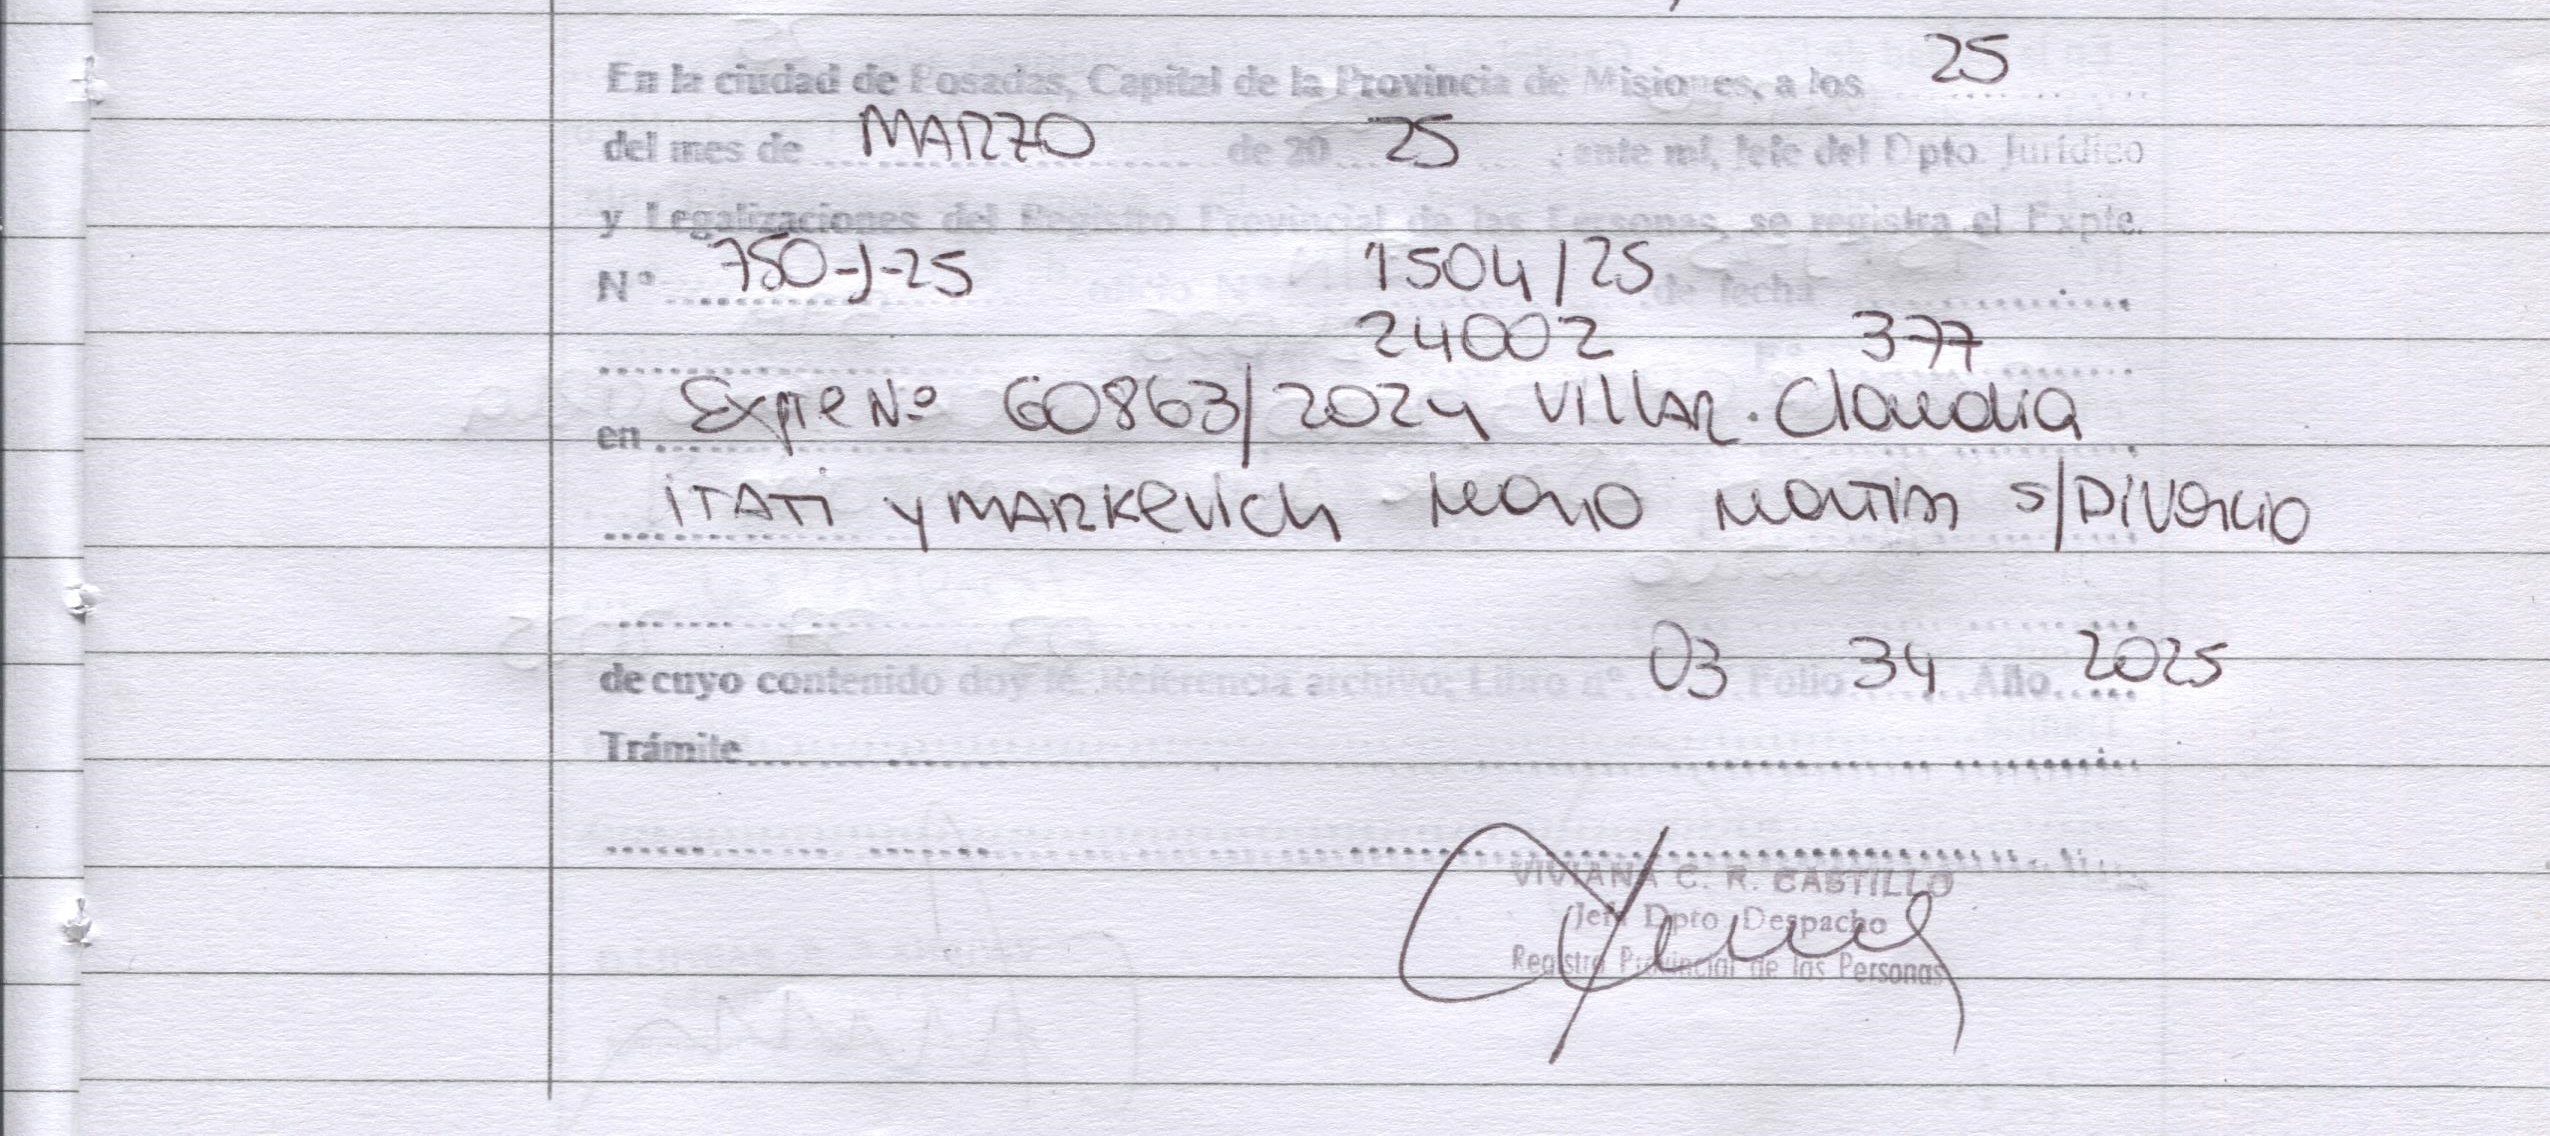 En la ciudad de Posadas, Capital de la Provincia de Misiones, a los 25
del mes de MARZO de 20 25 ; ante mí, Jefe del Dpto. Jurídico
y Legalizaciones del Registro Provincial de las Personas, se registra el Expte.
Nº 750-J-25 1504/25 de fecha
24002 377
en Expte Nº 60863/2024 VILLAR. Claudia
ITATI y MARKEVICH Martin s/DIVORCIO
de cuyo contenido doy Referencia archivo: Libro nº 03 Folio 34 Año 2025
Trámite
VIVIANA C. R. CASTILLO
Jefe Dpto. Despacho
Registro Provincial de las Personas